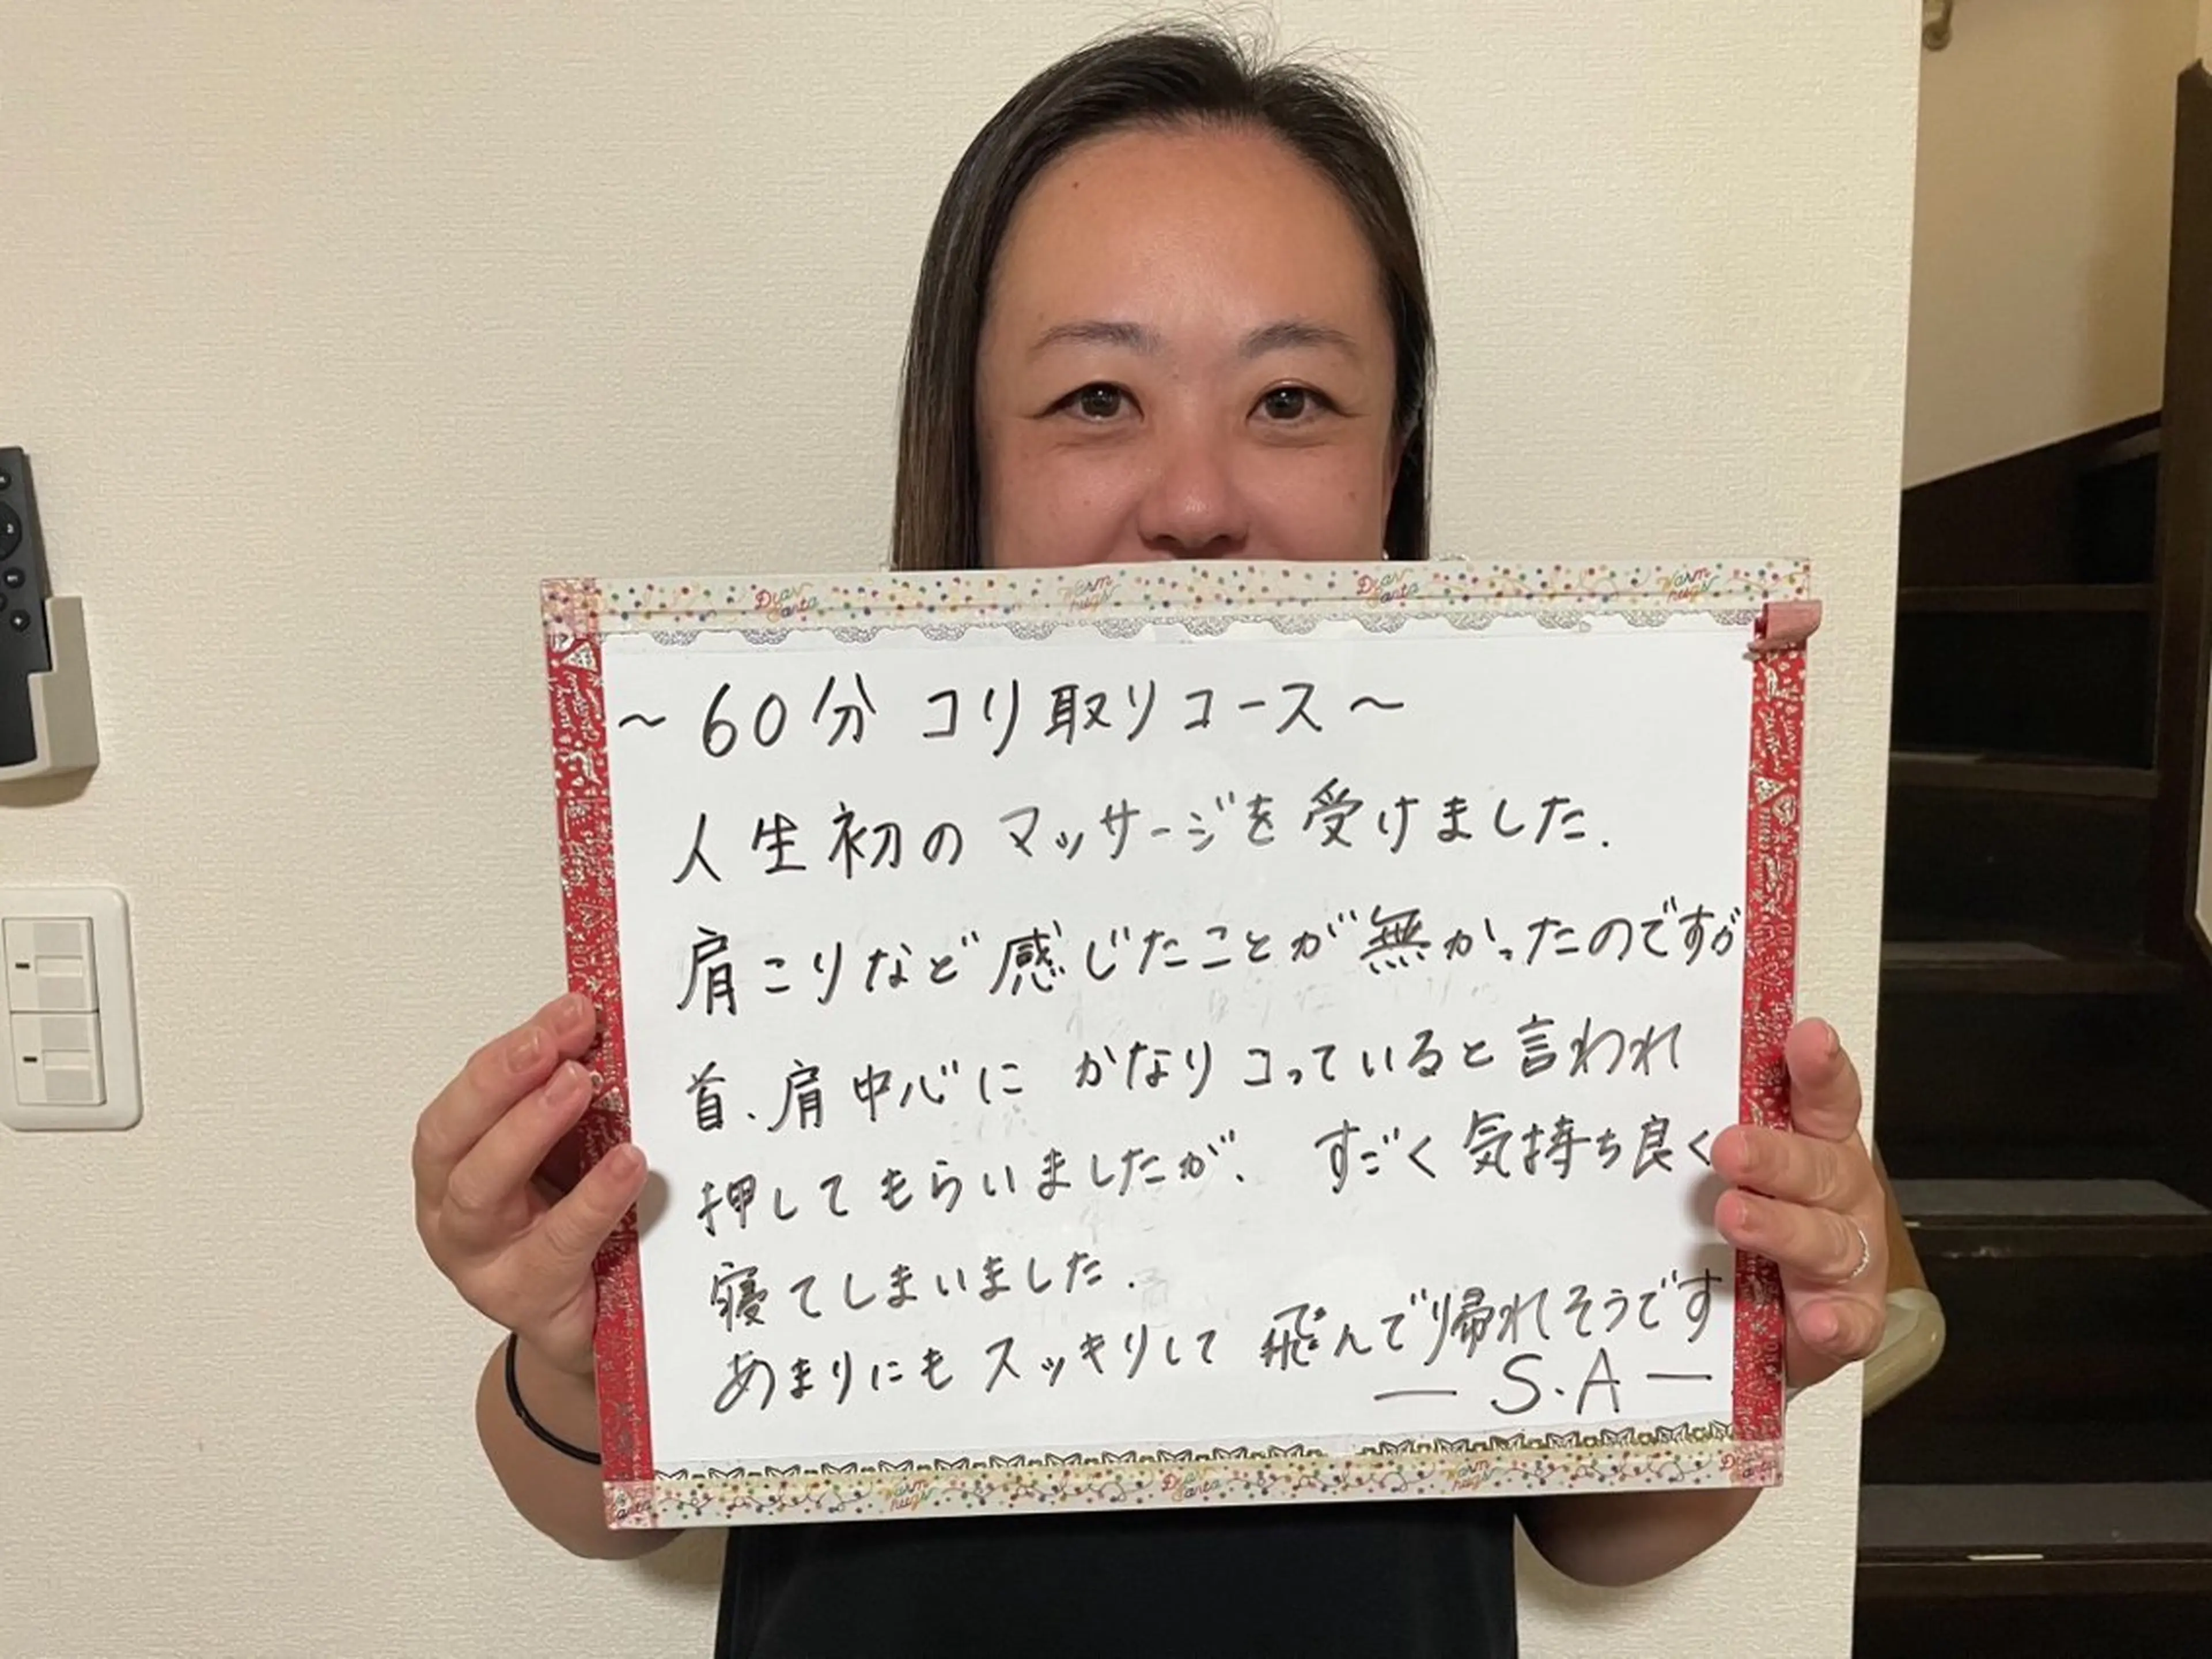 Dear Santa Warm hugs Dear Santa Warm hugs
～60分 コリ取りコース～
人生初のマッサージを受けました.
肩こりなど感じたことが無かったのですが
首、肩中心に かなりコっていると言われ
押してもらいましたが、 すごく気持ち良く
寝てしまいました.
あまりにもスッキリして 飛んで帰れそうです
— S.A —
Warm hugs Dear Santa Warm hugs Dear Santa